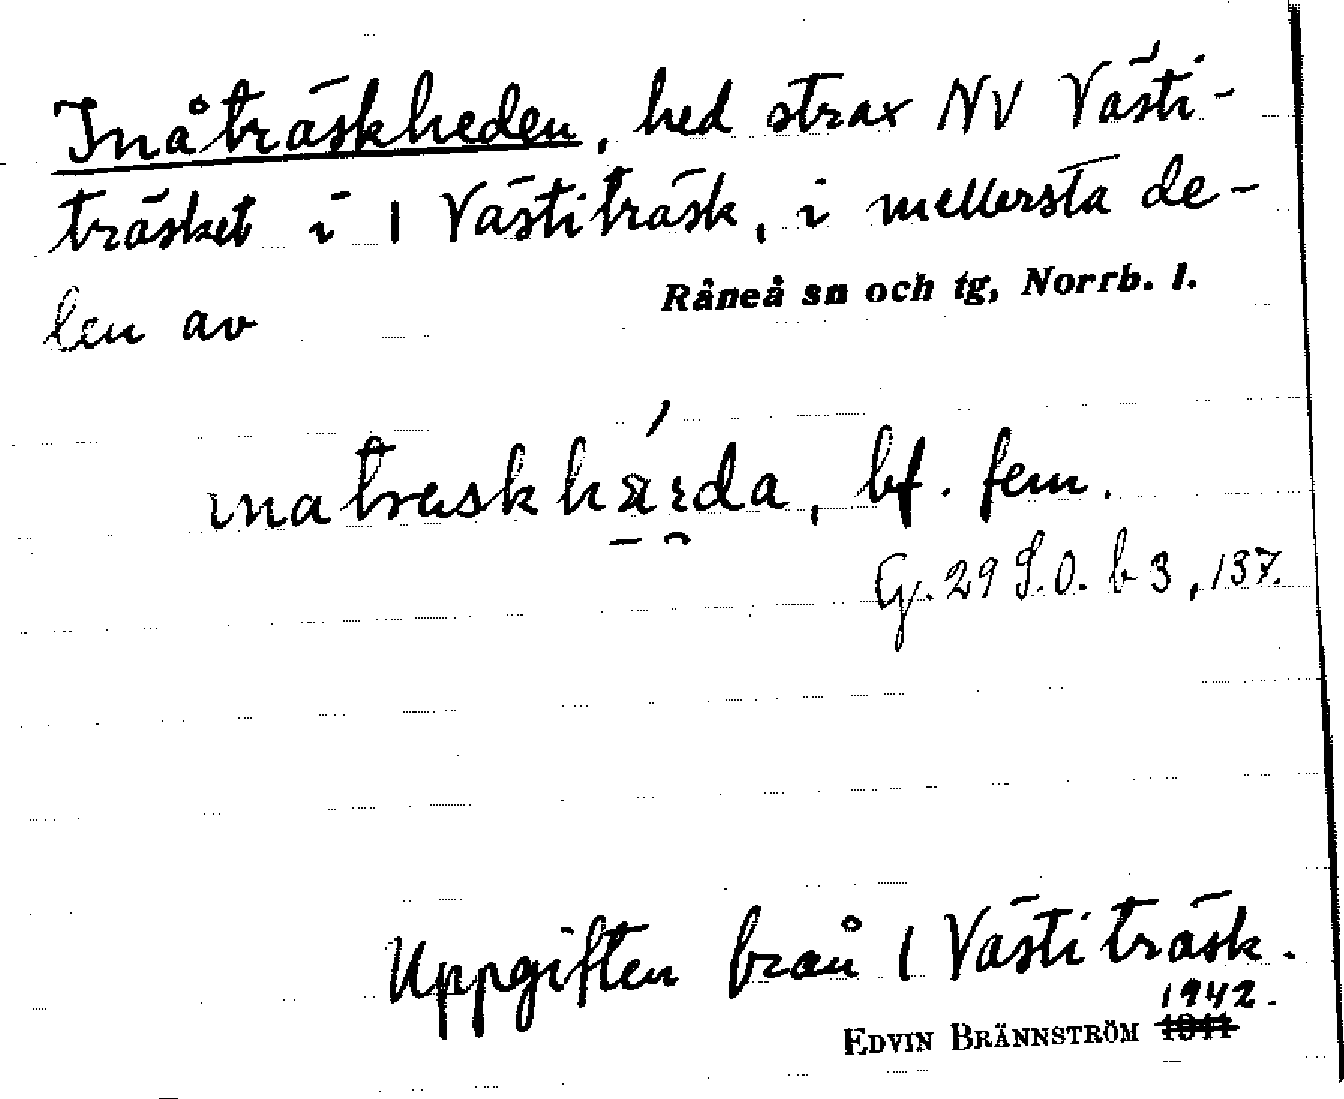 Inåträskheden, hed strax NV Västi-
träsket i 1 Västiträsk, i mellersta de-
len av
Råneå sn och tg, Norrb. l.
bf. fem.
G. 29 S.O. b 3, 137.
Uppgiften från 1 Västiträsk.
1942.
EDVIN BRÄNNSTRÖM 1941